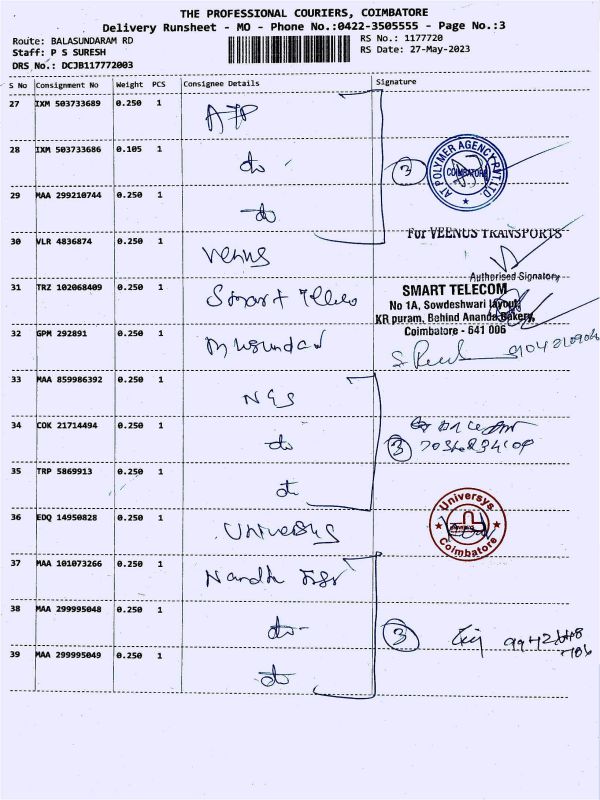 THE PROFESSIONAL COURIERS, COIMBATORE
Delivery Runsheet - MO - Phone No.:0422-3505555 - Page No.:3
Route: BALASUNDARAM RD
RS No.: 1177720
Staff: P S SURESH
RS Date: 27-May-2023
DRS No.: DCJB117772003
S No Consignment No Weight PCS Consignee Details Signature
27 IXM 503733689 0.250 1
28 IXM 503733686 0.105 1 do
3
AT POLYMER AGENCY PVT.LTD
COIMBATORE
29 MAA 299210744 0.250 1 do
For VEENUS TRANSPORTS
30 VLR 4836874 0.250 1 Venus
Authorised Signatory
31 TRZ 102068409 0.250 1 Smart
SMART TELECOM
No 1A, Sowdeshwari layout,
KR puram, Behind Ananda Bakery,
Coimbatore - 641 006
32 GPM 292891 0.250 1
33 MAA 859986392 0.250 1
34 COK 21714494 0.250 1 do
3
35 TRP 5869913 0.250 1 do
36 EDQ 14950828 0.250 1 Universys
Universys
Coimbatore
37 MAA 101073266 0.250 1
38 MAA 299995048 0.250 1 do
3
39 MAA 299995049 0.250 1 do